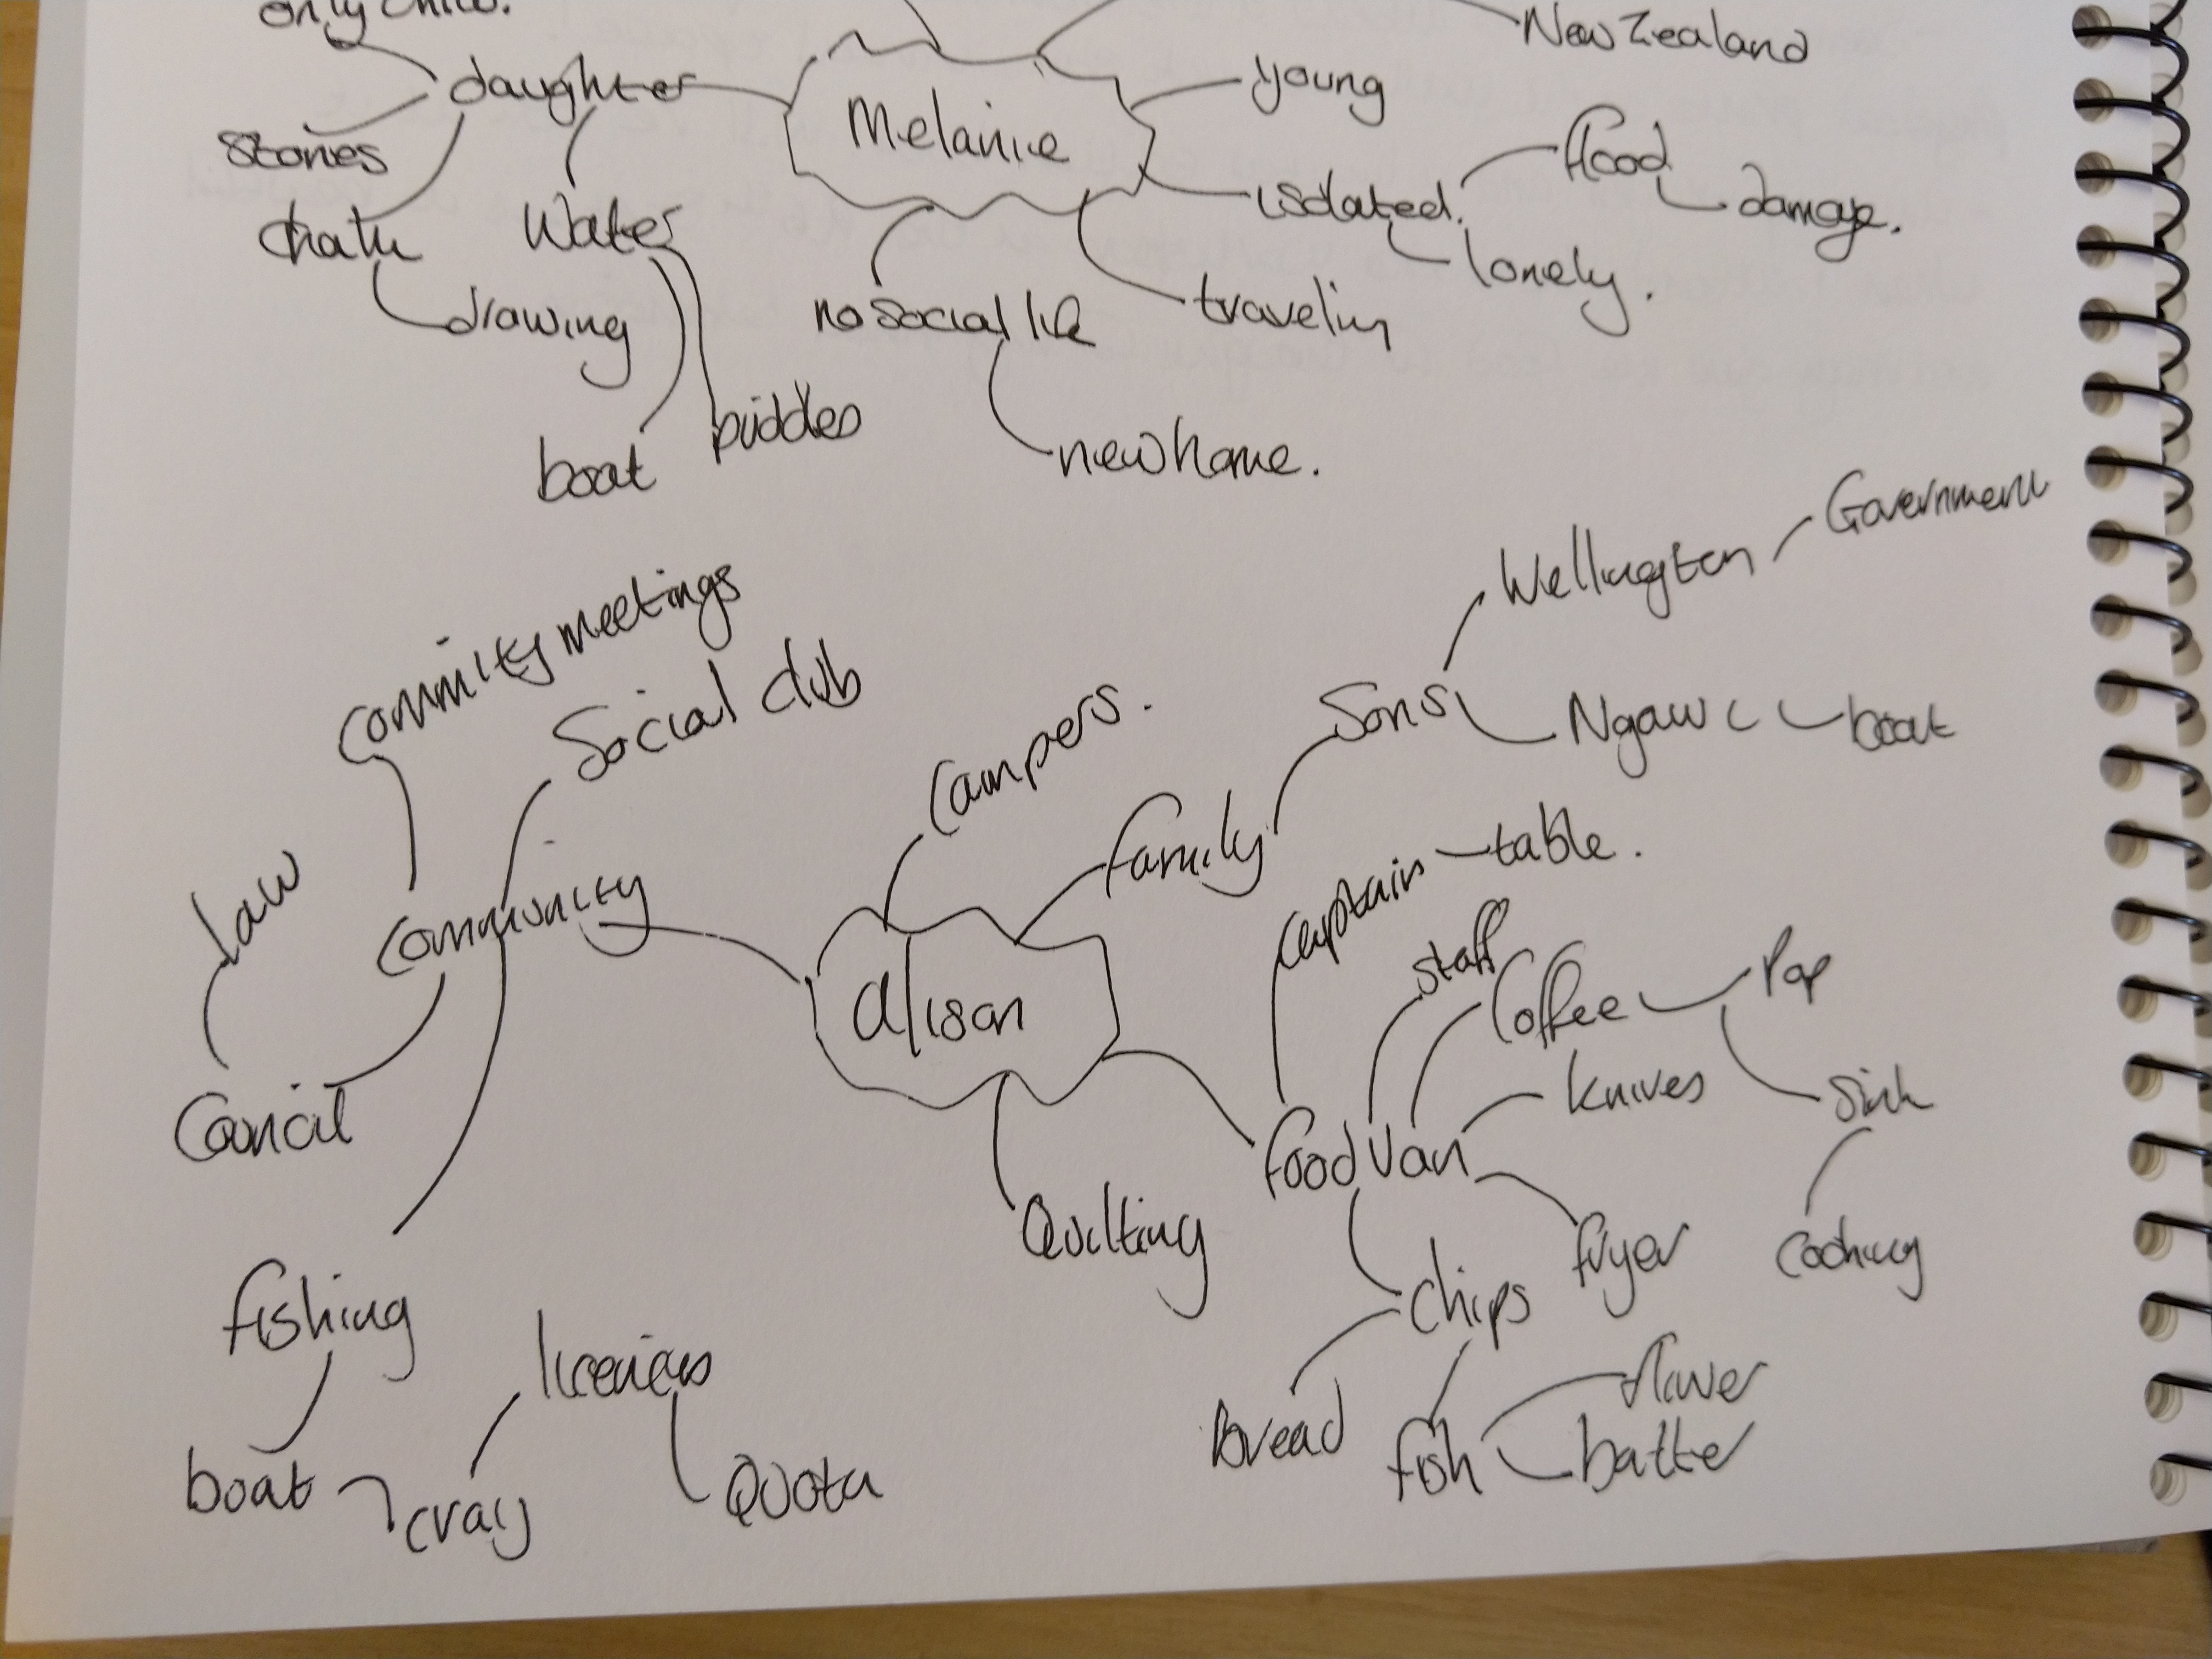 only child.
New Zealand
daughter
Melanie
young
stones
flood
isolated.
damage.
Water
chalk
lonely.
drawing
no social life
traveling
boat
puddles
new home.
Government
Wellington
commity meetings
Social club
Campers.
Sons
Ngawi
boat
family
captains
table.
Law
Community
staff
Coffee
Pop
alison
Knives
Sink
Council
food Van
Quilting
fryer
cooking
fishing
Chips
flower
bread
fish
batter
boat
cray
Quota